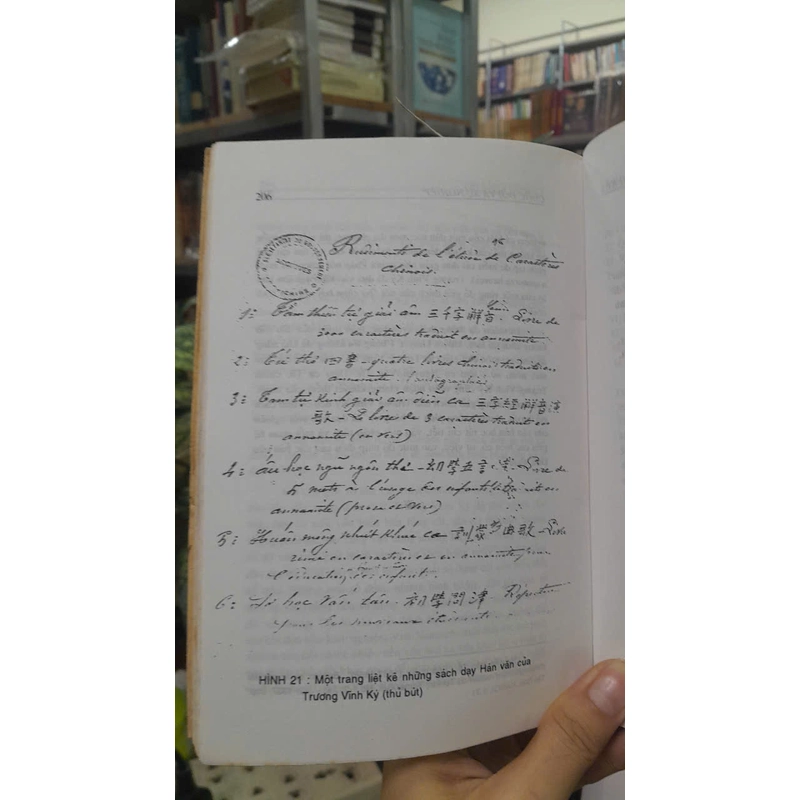 206
Rudiments de l'étude de Caractères
chinois.
1: Tam thiên tự giải âm 三千字解音. Livre de
3000 caractères traduit en annamite
2: Tứ thơ 四書 - quatre livres chinois traduits en
annamite.
3: Tam tự kinh giải âm diễn ca 三字經解音演
歌 - Le livre de 3 caractères traduit en
annamite (en vers)
4: Ấu học ngũ ngôn thi - 幼學五言詩. Livre de
5 mots à l'usage des enfants en
annamite (prose et vers)
5: Huấn mông khúc ca 訓蒙曲歌 - Livre
rimé en caractères et en annamite pour
l'éducation des enfants.
6: Sơ học vấn tân. 初學問津
pour les nouveaux étudiants.
HÌNH 21 : Một trang liệt kê những sách dạy Hán văn của
Trương Vĩnh Ký (thủ bút)